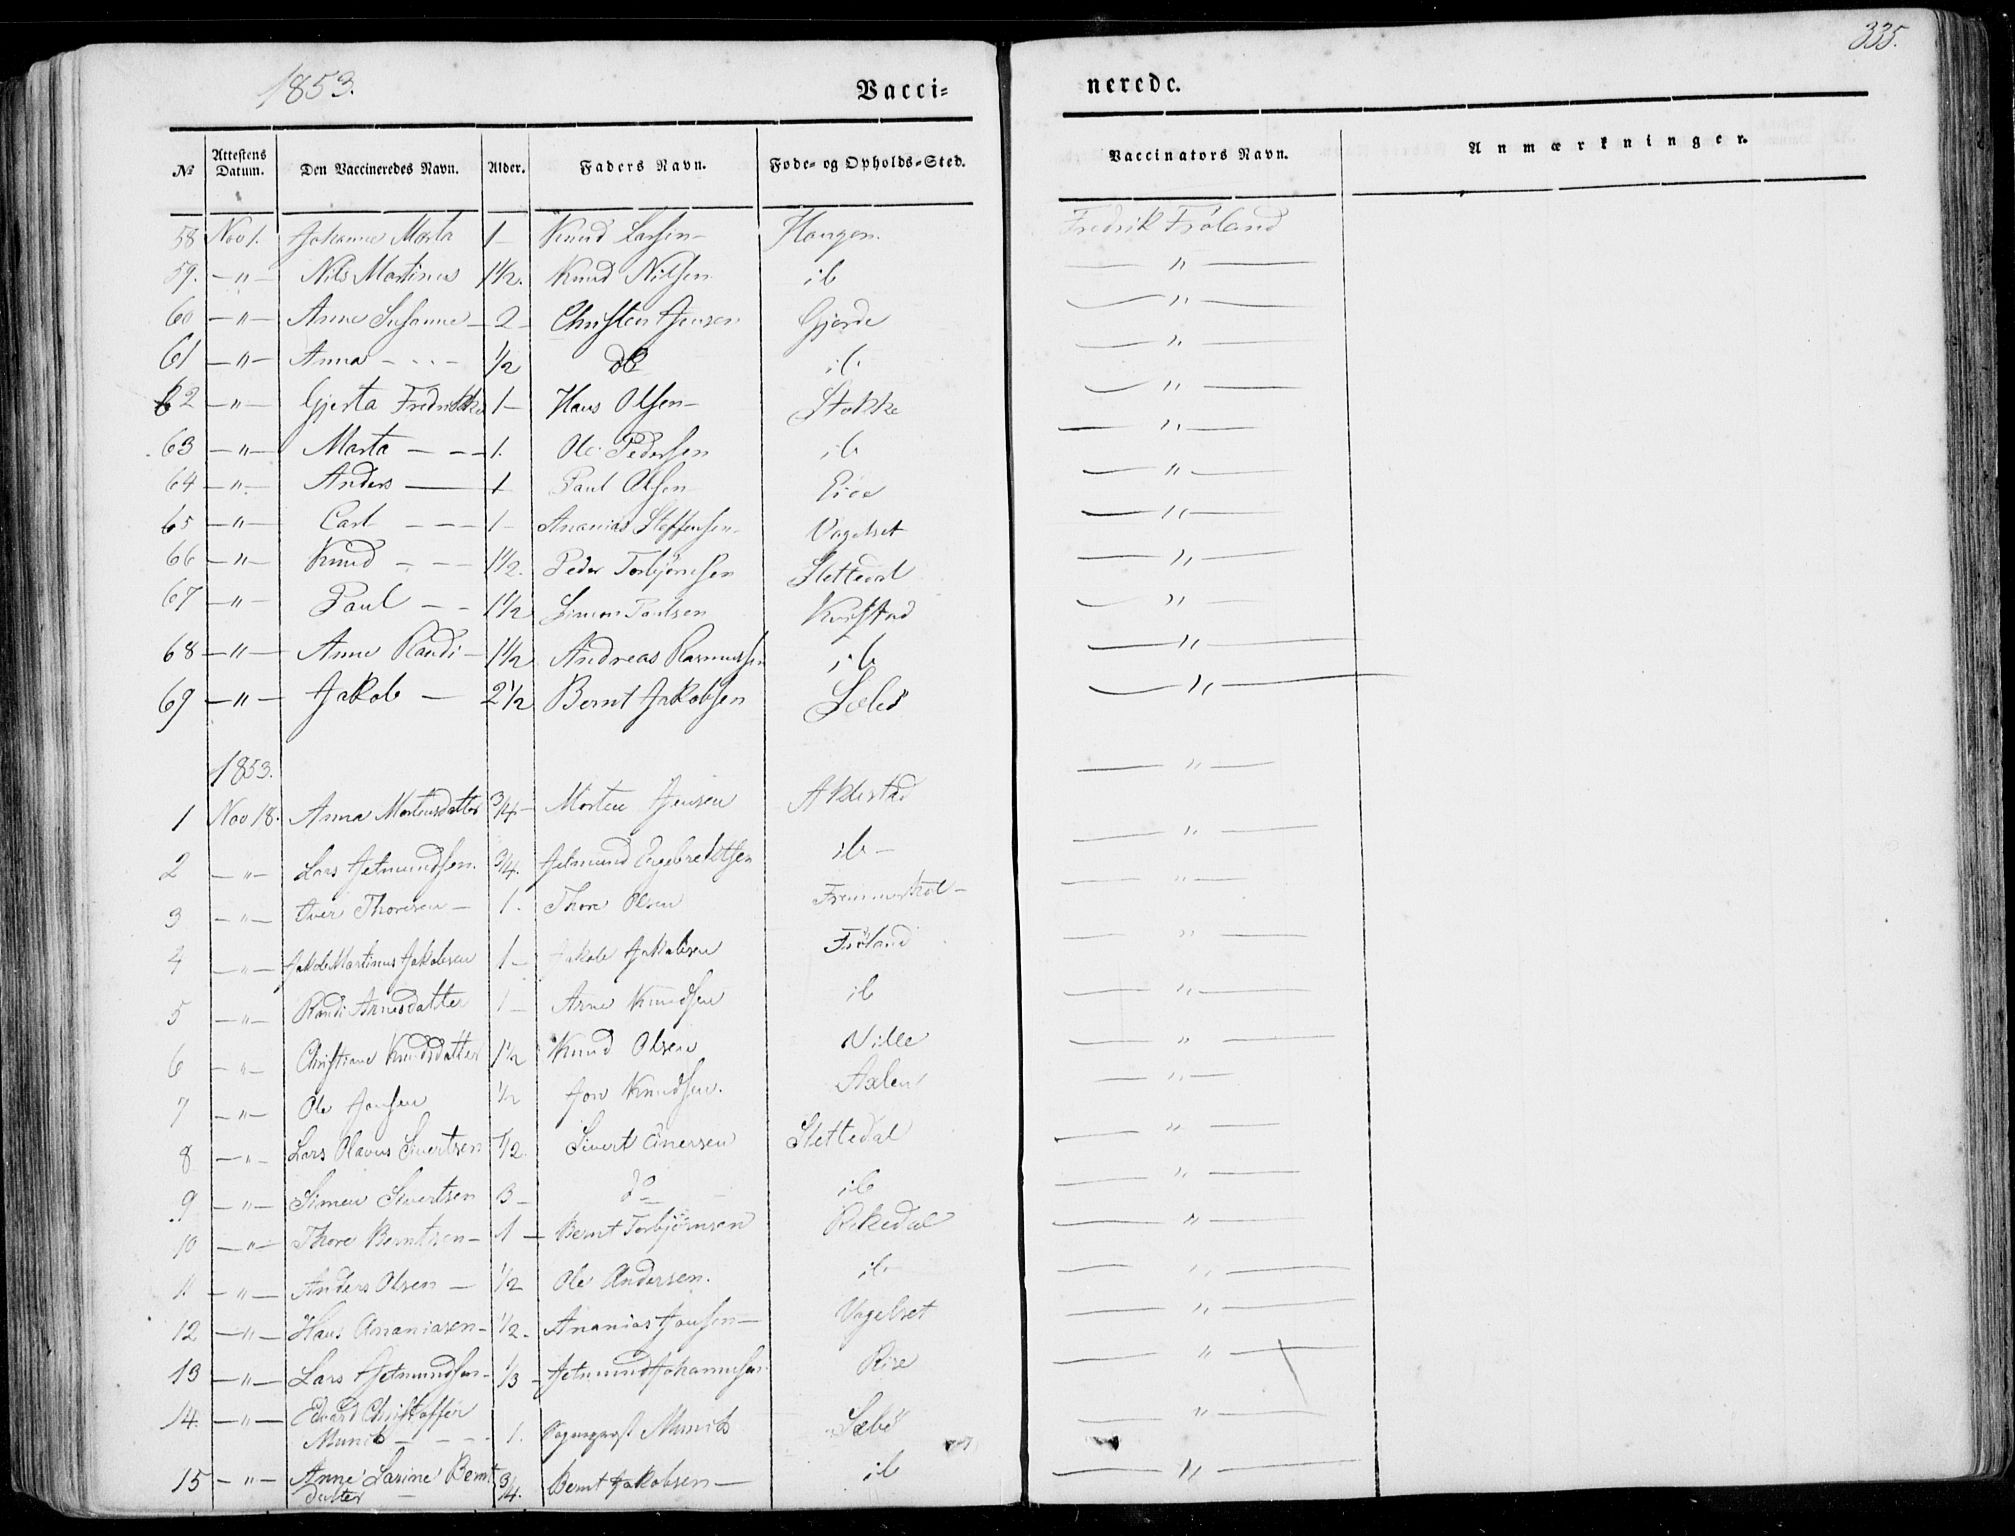 335.
1853.
Vacci= nerede.
№ Attestens Datum. Den Vaccineredes Navn. Alder. Faders Navn. Føde= og Opholds=Sted. Vaccinators Navn. Anmærkninger.
58 Nov 1. Johanne Marta 1 — Knud Larsen — Haugen. Fredrik Frøland
59. — " — Nils Martinus 1½. Knud Nilsen ib — " —
60 — " — Anne Susanne — 2 — Christen Jensen Gjerde — " —
61 — " — Anna - - - - ½ do ib — " —
62 — " — Gjerta Fredrikke 1 — Hans Olsen — Stokke — " —
63 — " — Marta — — — 1. Ole Pedersen ib — " —
64 — " — Anders — 1 Paul Olsen — " —
65 — " — Carl — — — 1 — Ananias Steffensen — Vagelset — " —
66 — " — Knud — — — 1½. Peder Torbjørnsen Slettedal — " —
67 — " — Paul — — 1½ Simon Paulsen — " —
68 — " — Anne Randi — 1½ Andreas Rasmussen ib — " —
69 — " — Jakob — 2½ Bernt Jakobsen Sæbø — " —
1853.
1 Nov 18. Anna Mortensdatter ¾ — Morten Jensen Aklestad — " —
2 — " — Lars Jetmundsen. ¾. Jetmund Engebretsen ib — — " —
3 — " — Iver Thoresen — 1. Thore Olsen — " —
4 — " — Jakob Martinus Jakobsen 1 — Jakob Jakobsen Frøland — " —
5 — " — Randi Arnesdatter 1 — Arne Knudsen ib — " —
6 — " — Christiane Knudsdatter 1½ Knud Olsen Ville — " —
7 — " — Ole Jonsen ½ Jon Knudsen. Aalen — " —
8 — " — Lars Olavus Sivertsen ½. Sivert Einersen Slettedal — " —
9 — " — Simen Sivertsen 3 — do — ib — " —
10 — " — Thore Berntsen — 1 — Bernt Torbjørnsen Rekedal — " —
11 — " — Anders Olsen — ½ Ole Andersen. ib — " —
12 — " — Hans Ananiasen — ½. Ananias Jansen — Vagelset — " —
13 — " — Lars Jetmundsen — ⅓ — Jetmund Johannesen Rise — " —
14. — " — Edvard Christoffer
Munch — - - 1. Munch Sæbø — " —
15 — " — Anne Larine Bernt
datter — ¾. Bernt Jakobsen — ib — " —